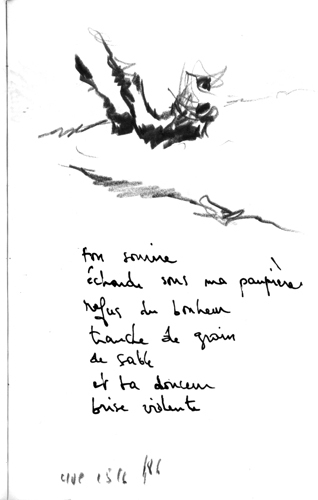 ton sourire
écharde sous ma paupière
refus du bonheur
tranche de grain
de sable
et ta douceur
brise violente